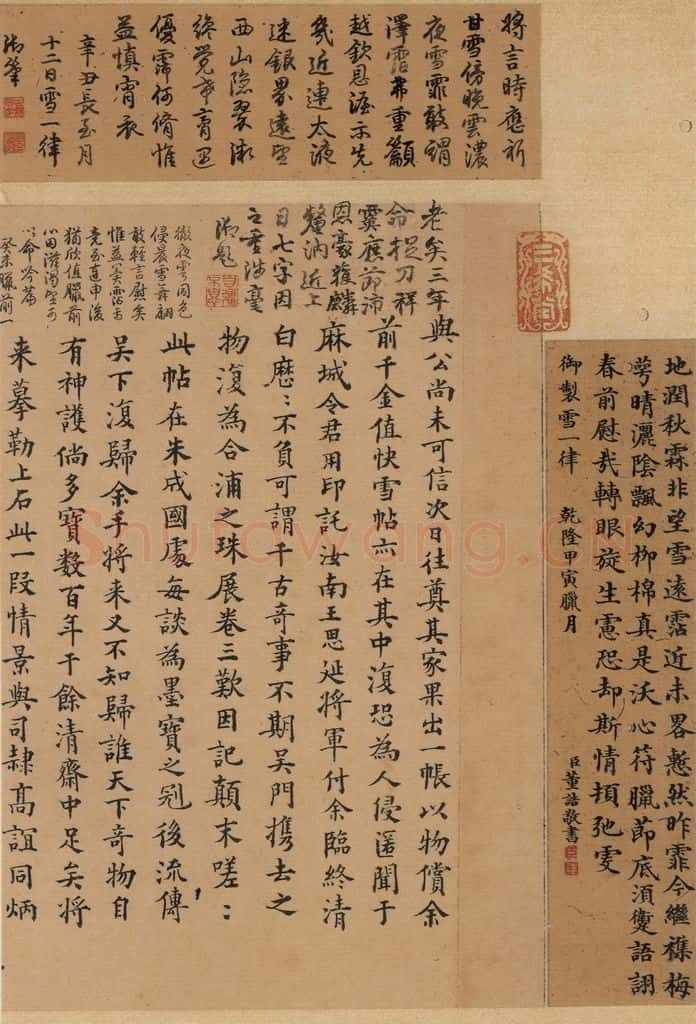 地潤秋霖非望雪遠霑近未畧愁然昨霏今繼襍梅
萼晴灑陰飄幻柳棉真是沃心符臘節底須夔語詡
春前慰哉轉眼旋生慮恐却斯情頓弛雯
御製雪一律 乾隆甲寅臘月
臣董誥敬書
將言時應祈
甘雪傍晚雲濃
夜雪霏敢謂
澤霑弗重籲
越欽恩渥示先
幾近連太液
迷銀界遠望
西山隱翠微
終覺希膏遇
優霈何脩惟
益慎宵衣
辛丑長至月
十二日雪一律
御筆
老矣三年
命捉刀祥
霙應節沛
恩豪獲麟
近上
日七字因
御題
徹夜雲同色
侵晨雪舞翩
敢輕言慰矣
惟益冀霑焉
竟至直申後
猶欣值臘前
心田滋渴望
命吟篇
癸未臘前一
與公尚未可信次日往奠其家果出一帳以物償余
前千金值快雪帖亦在其中復恐為人侵匿聞于
麻城令君用印託汝南王思延將軍付余臨終清
白歷歷不負可謂千古奇事不期吳門携去之
物復為合浦之珠展卷三歎因記顛末嗟嗟
此帖在朱成國處每談為墨寶之冠後流傳
吳下復歸余手將来又不知歸誰天下奇物自
有神護倘多寶數百年于餘清齋中足矣將
来摹勒上石此一段情景與司隷高誼同炳
Shufawang.cn